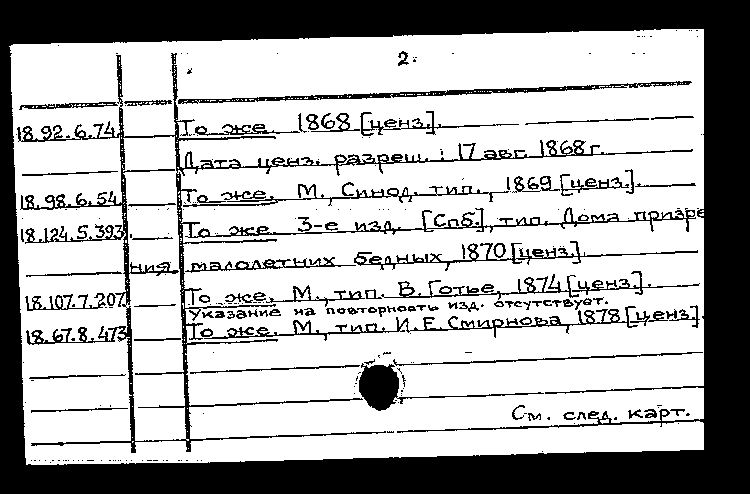 2.
18.92.6.74 То же. 1868 [ценз.].
Дата ценз. разреш.: 17 авг. 1868 г.
18.98.6.54 То же. М., Синод. тип., 1869 [ценз.].
18.124.5.393 То же. 3-е изд. [Спб.], тип. Дома призре
ния малолетних бедных, 1870 [ценз.]
18.107.7.207 То же. М., тип. В. Готье, 1874 [ценз.].
Указание на повторность изд. отсутствует.
18.67.8.473 То же. М., тип. И. Е. Смирнова, 1878 [ценз.].
См. след. карт.